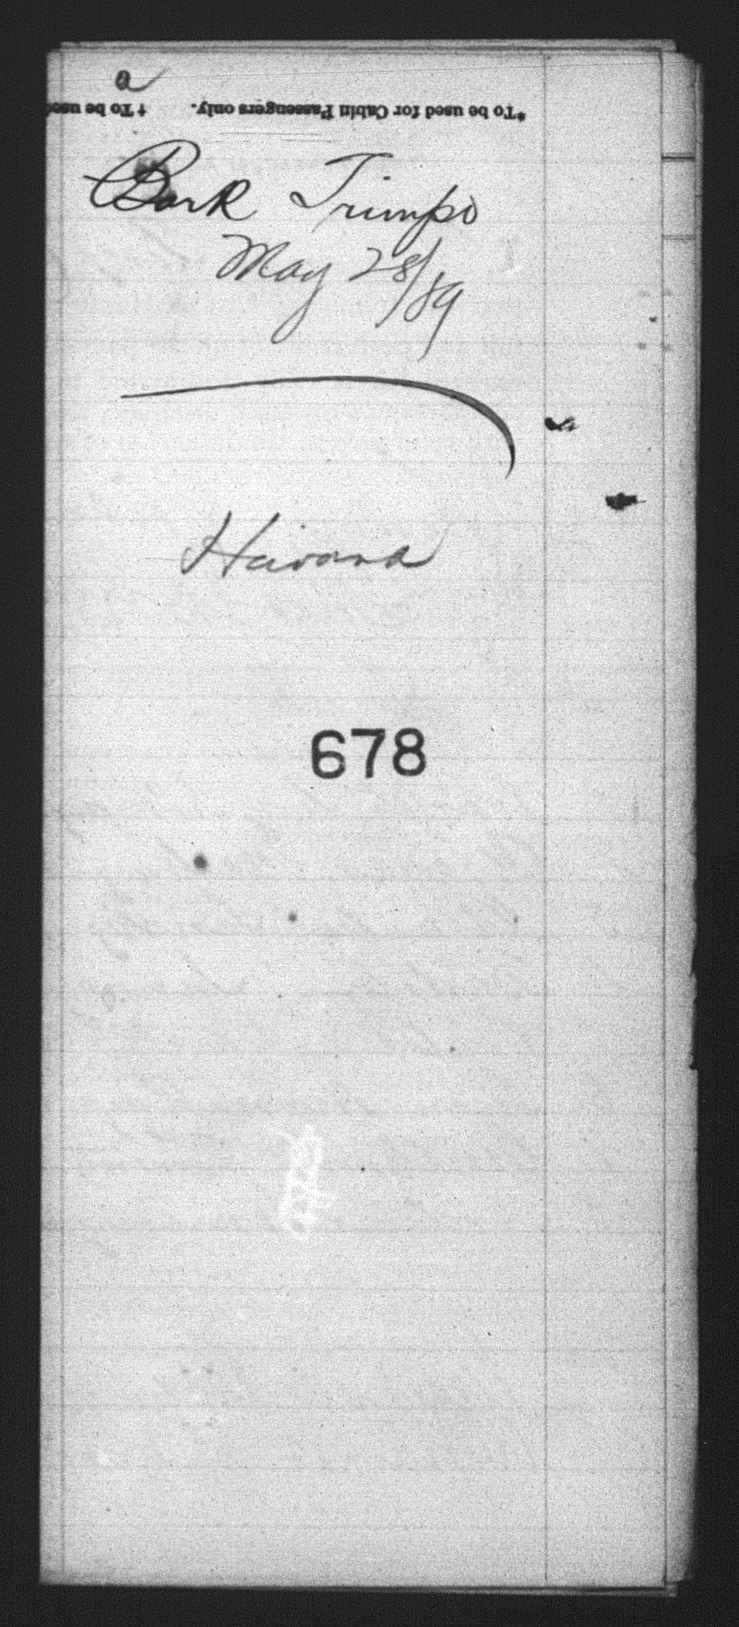 a
*To be used for Cabin Passengers only. † To be used
Bark Trimpo
May 28/89
Havana
678